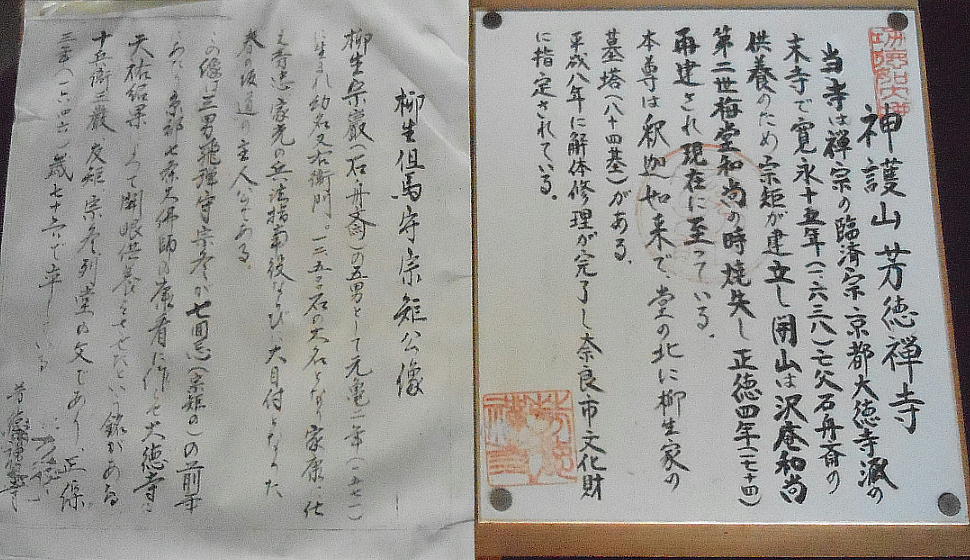 神護山芳徳禅寺
当寺は禅宗の臨済宗京都大徳寺派の
末寺で寛永十五年(一六三八)亡父石舟斎の
供養のため宗矩が建立し開山は沢庵和尚
第二世梅堂和尚の時焼失し正徳四年(一七一四)
再建され現在に至っている。
本尊は釈迦如来で、堂の北に柳生家の
墓塔(八十四基)がある。
平成八年に解体修理が完了し奈良市文化財
に指定されている。
柳生但馬守宗矩公像
柳生宗厳(石舟斎)の五男として元亀二年(一五七一)
に生まれ幼名又右衛門。一二五〇〇石の大名となり家康に仕
え秀忠家光の兵法指南役ならびに大目付となった
春の坂道の主人公である。
この像は三男飛騨守宗冬が七回忌(宗矩の)の前年
京都七条大仏師の康看に作らせ大徳寺
天祐紹杲によって開眼供養をさせたという銘がある
十兵衛三厳友矩宗冬列堂の父であり正保
三年(一六四六)歳七十六で卒